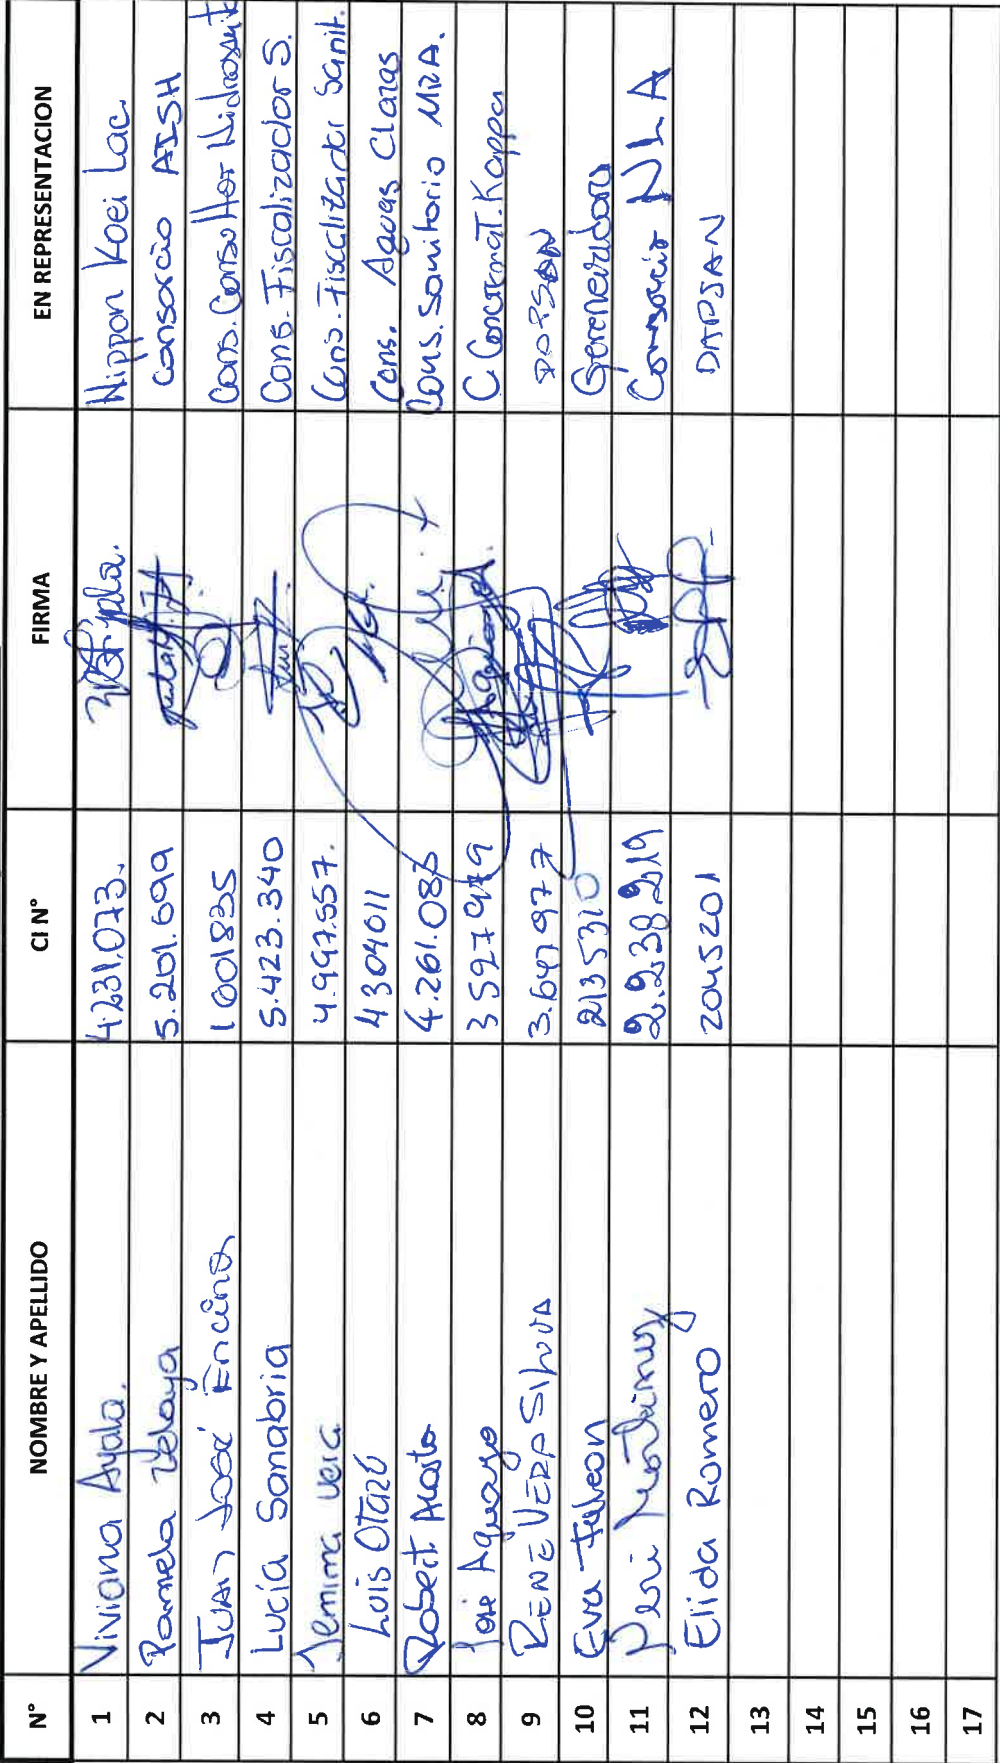 N° NOMBRE Y APELLIDO CI N° FIRMA EN REPRESENTACION
1 Viviana Ayala. 4.231.073. Nippon Koei Lac.
2 Pamela Zelaya 5.201.699 Consorcio AISH
3 JUAN José Encina 1001835 Cons. Consultor Hidrosanit
4 Lucía Sanabria 5.423.340 Cons. Fiscalizador S.
5 Jemima Vera 4.997.557. Cons. Fiscalizador Sanit.
6 Luis Otazú 4304011 Cons. Aguas Claras
7 Robert Acosta 4.261.083 Cons. Sanitario MRA.
8 José Aguayo 3527979 C. Concremat. Kappa
9 RENE VERA SILVA 3.647.977
10 Eva 2135310 Generadora
11 2.238219 Consorcio NLA
12 Elida Romero 2045201 DAPSAN
13
14
15
16
17